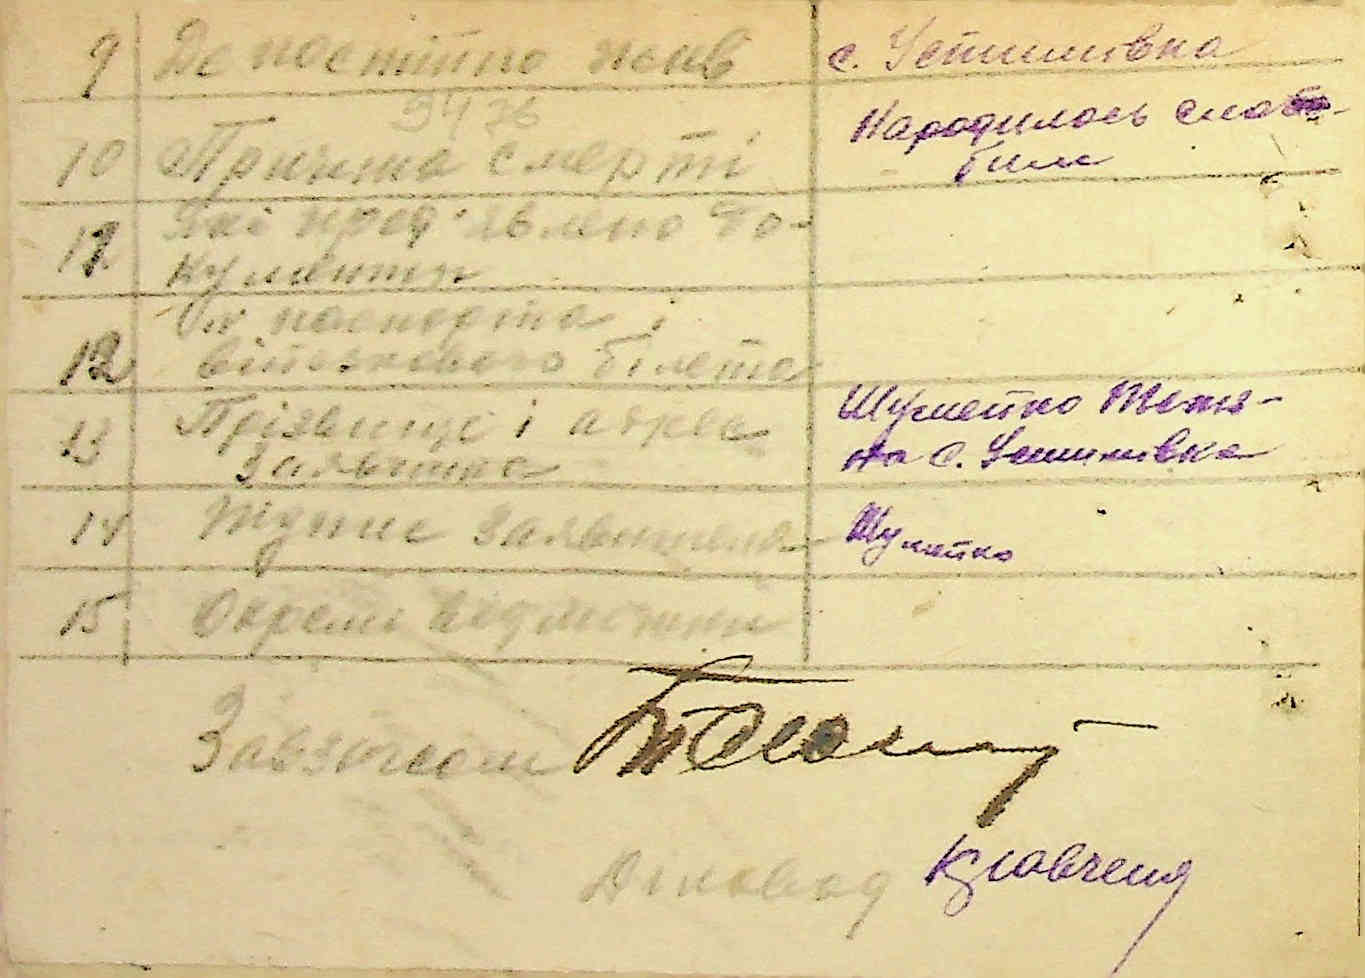 9 Де постійно жив с. Устимівка
9476
10 Причина смерті Народилось слаб-
бим
11 Які пред'явлено до-
кументи
№ паспорта і
12 військового білета
13 Прізвище і адрес Шумейко Тетя-
заявника на с. Устимівка
14 Підпис заявителя Шумейко
15 Окремі відмітки
Завзагсом
Діловод Кравченя